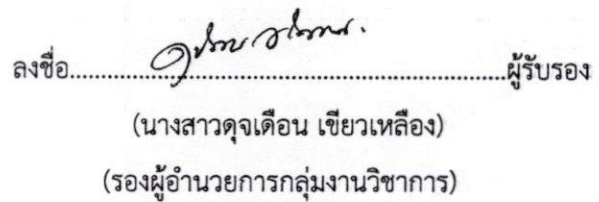 ลงชื่อ................................................................ผู้รับรอง
(นางสาวดุจเดือน เขียวเหลือง)
(รองผู้อำนวยการกลุ่มงานวิชาการ)